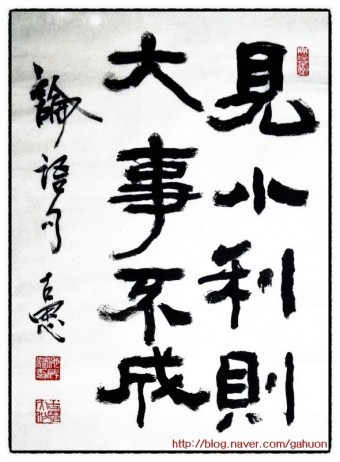 見小利則
大事不成
論語句
http://blog.naver.com/gahuon